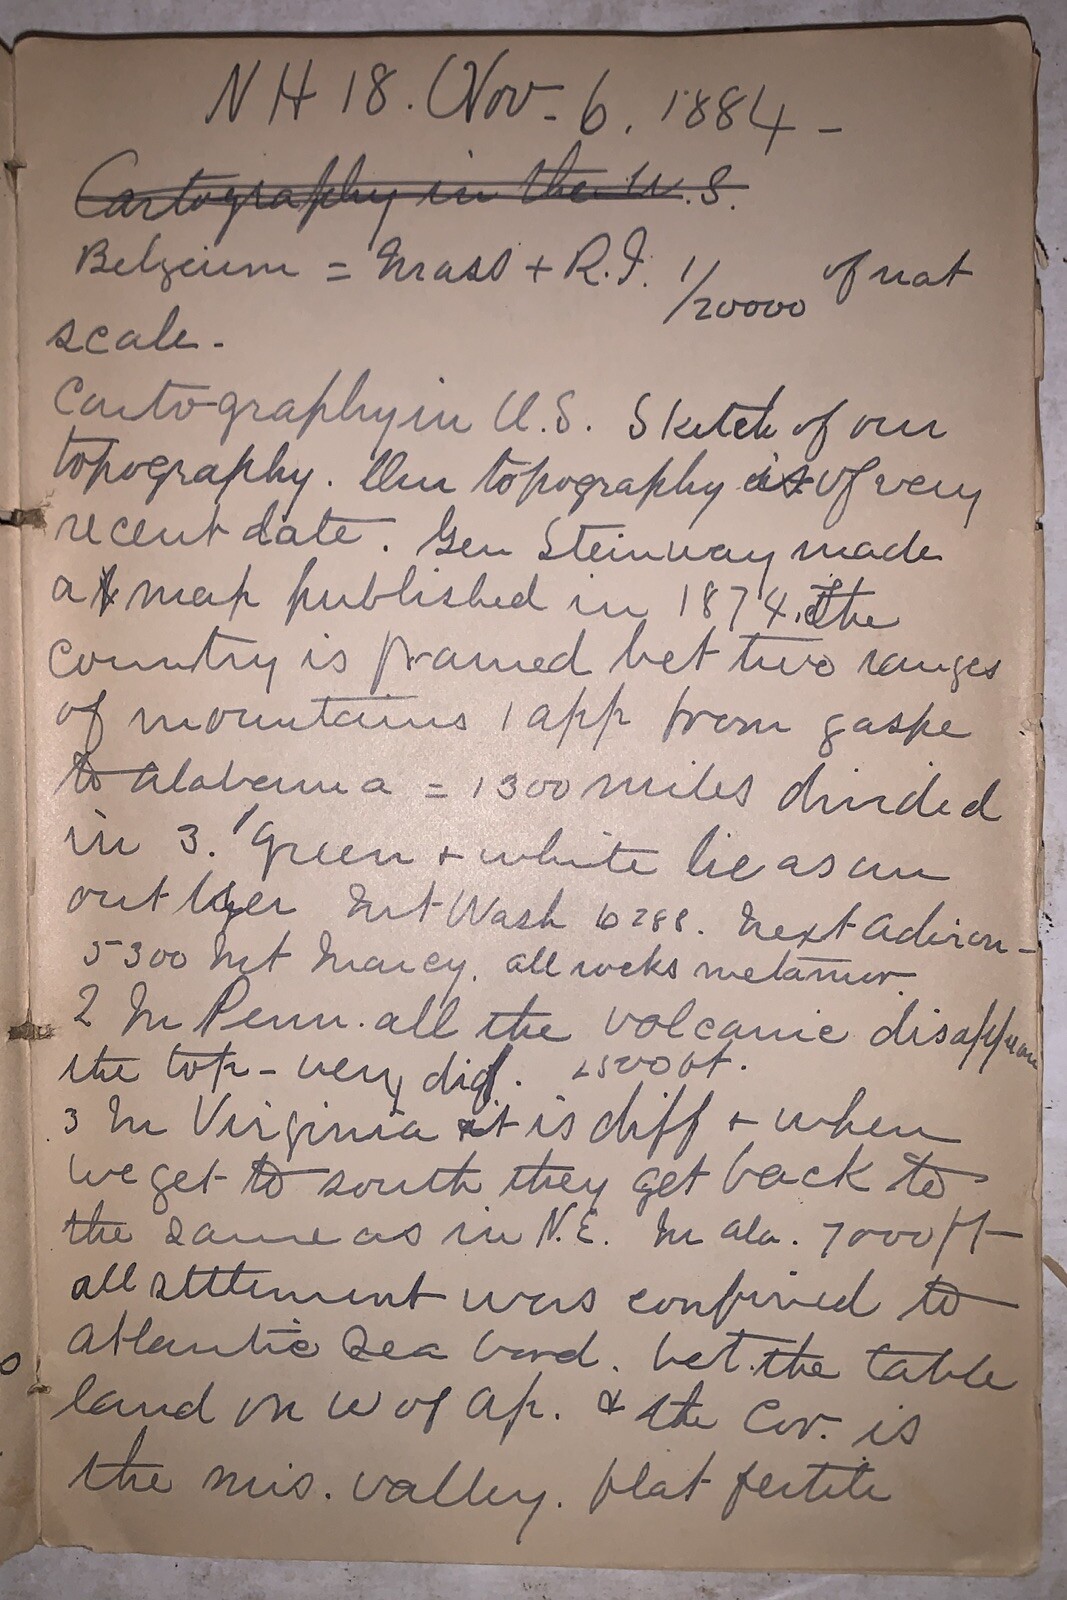 NH 18. (Nov. 6. 1884 -
Cartography in the U.S.
Belgium = Mass + R.I. 1/20000 of nat
scale.
Cartography in U.S. Sketch of our
topography. Our topography is of very
recent date. Gen Steinway made
a map published in 1874. The
country is framed bet two ranges
of mountains 1 app from gaspe
to Alabama = 1300 miles divided
in 3. 1 Green + white lie as an
out lyer Mt Wash 6288. Next Adiron-
5300 Mt Marcy. all rocks metamor.
2 In Penn. all the volcanic disappear
the top - very dif. 2500 ft.
3 In Virginia it is diff + when
we get to south they get back to
the same as in N.E. In ala. 7000 ft
all settlement was confined to
atlantic Sea bord. bet. the table
land on W of Ap. & the Cor. is
the mis. valley. flat fertile